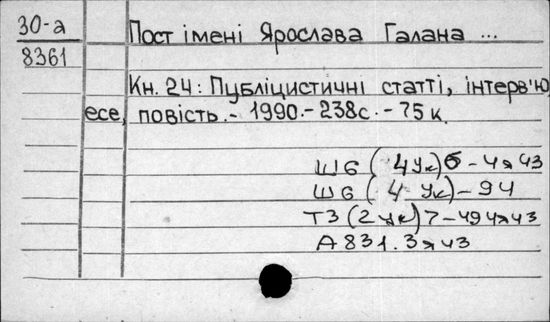 30-а Пост імені Ярослава Галана ...
8361
Кн. 24: Публіцистичні статті, інтерв'ю,
есе, повість.- 1990.- 238с.- 75 к.
Ш6(4Ук)6-4я43
Ш6(4Ук)-94
Т3(2Ук)7-494я43
А831.3я43